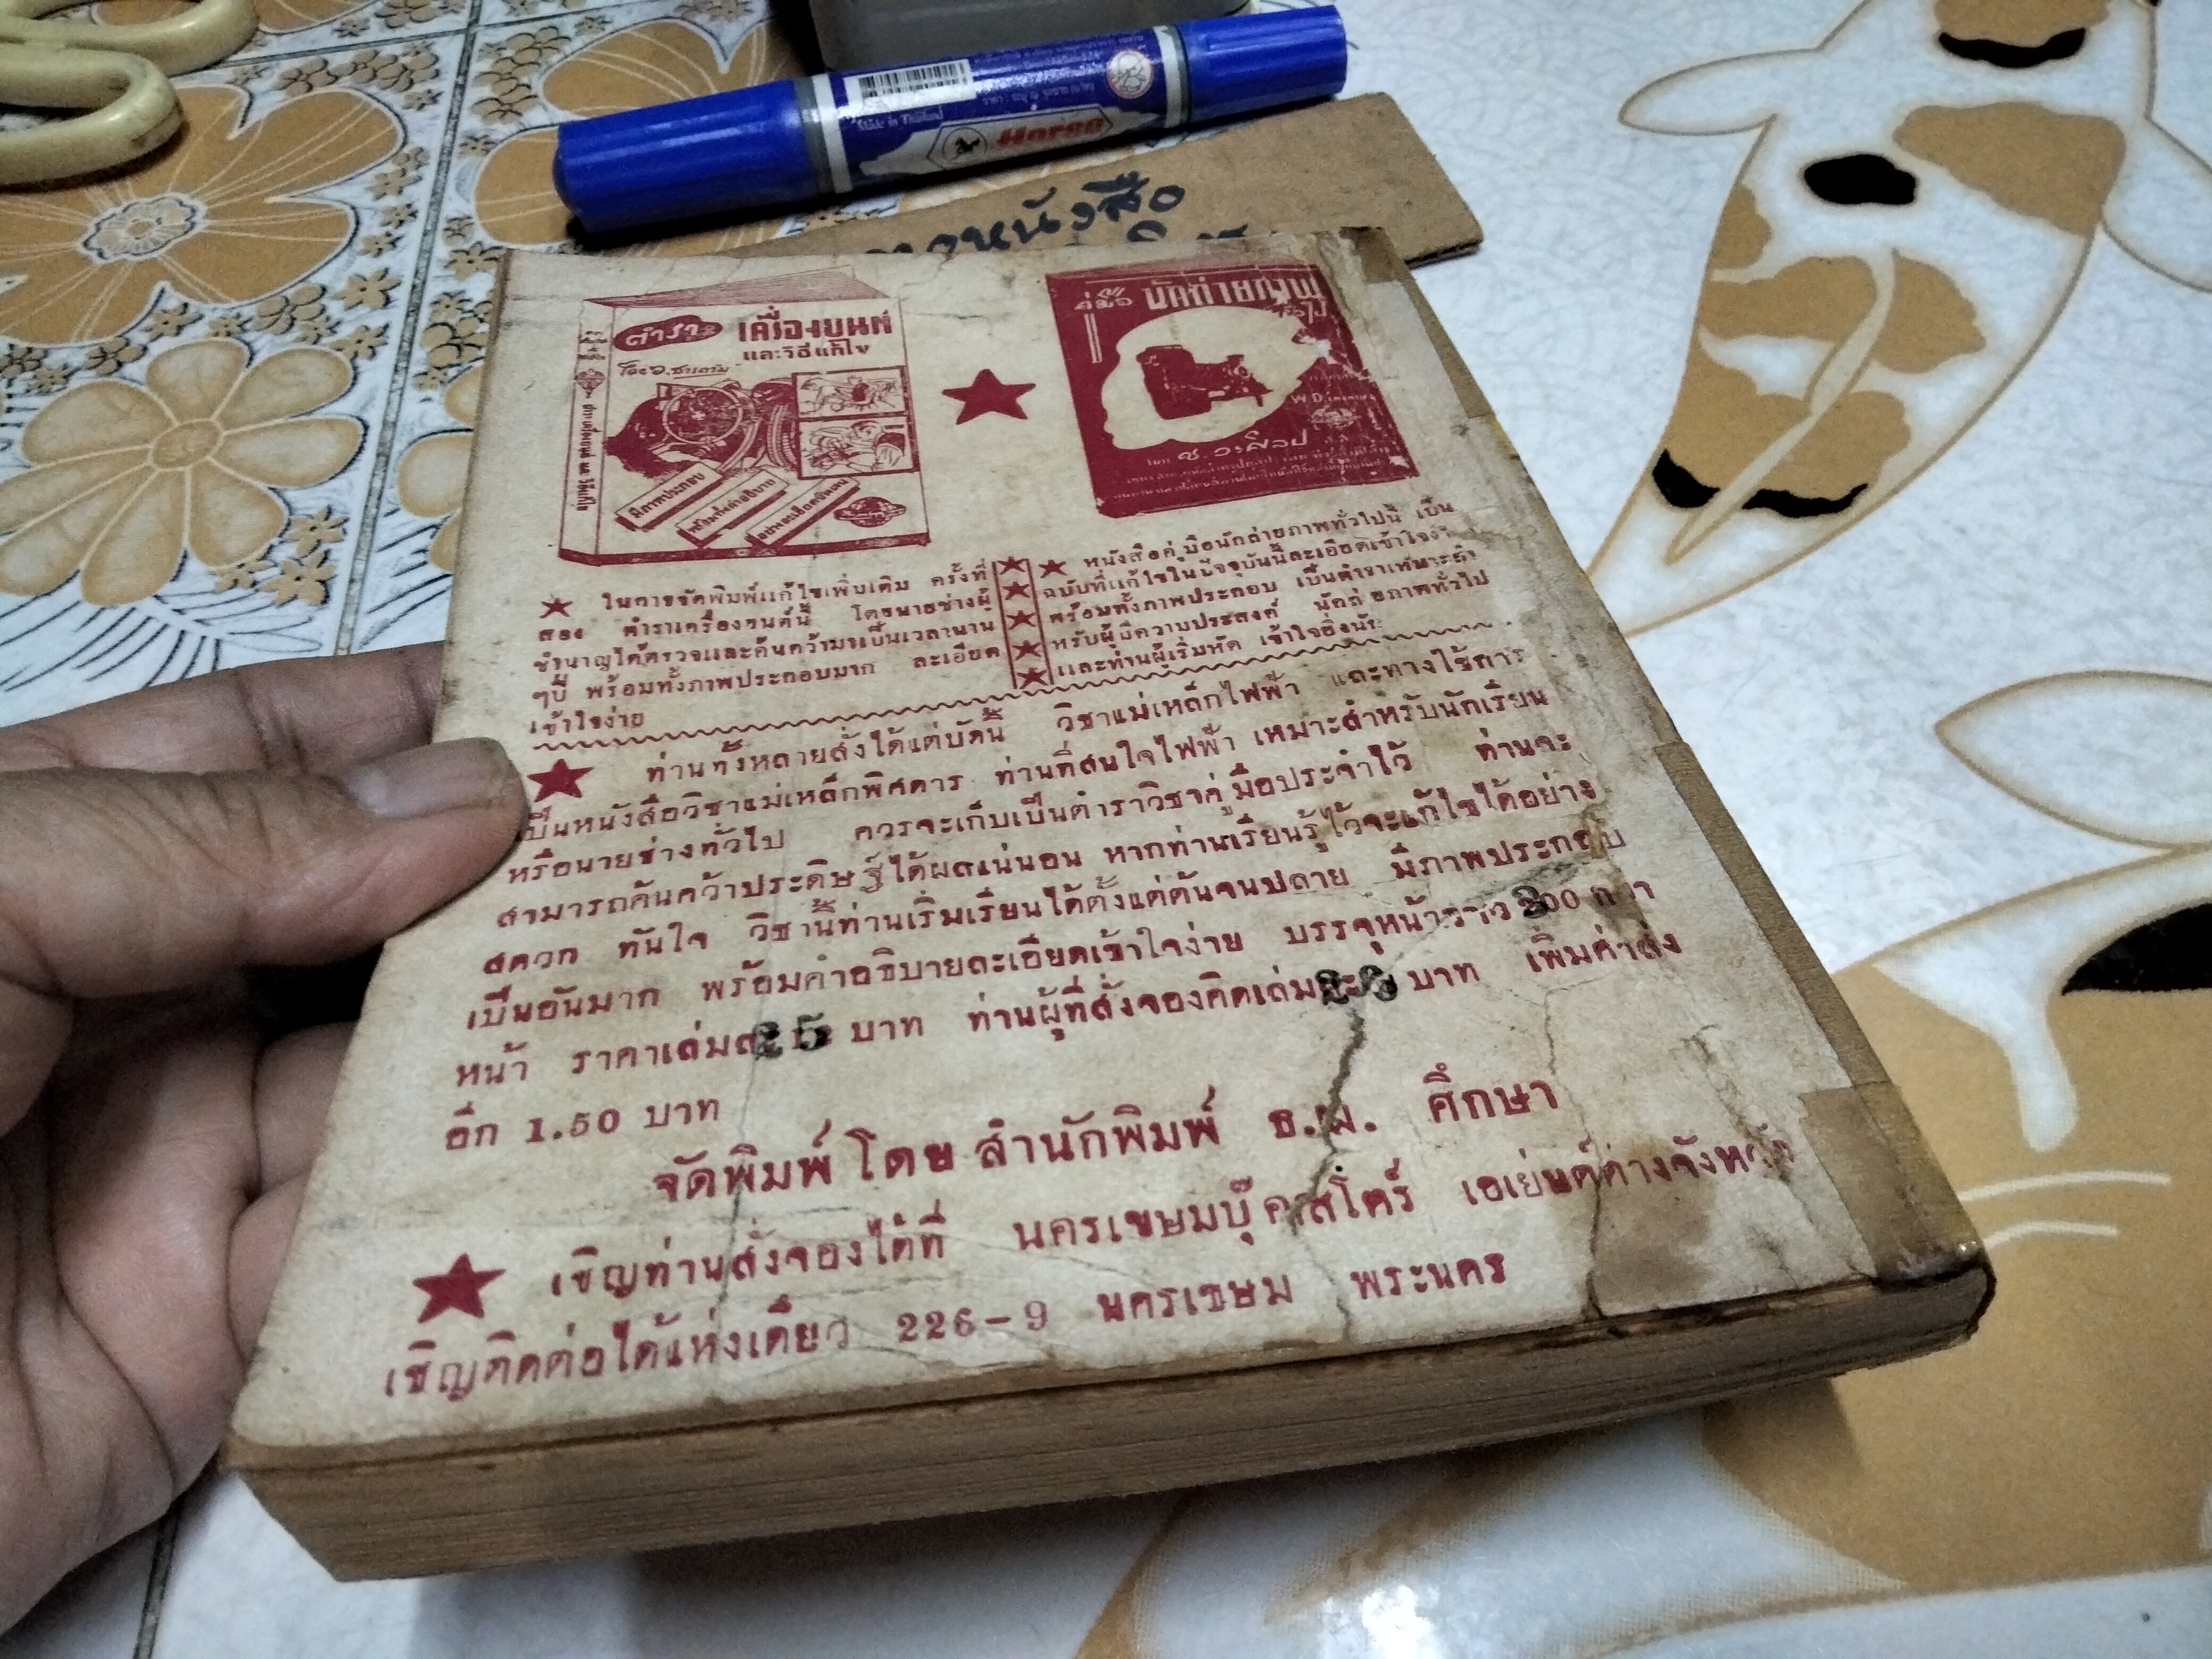 Made in Thailand
Horse
หนังสือ
ตำรา เครื่องยนต์
และวิธีแก้ไข
มีภาพประกอบ
พร้อมคำอธิบาย
อย่างละเอียดชัดเจน
คู่มือ นักถ่ายภาพ
ทั่วไป
โดย ช. วรศิลป
ในการจัดพิมพ์แก้ไขเพิ่มเติม ครั้งที่
สอง ตำราเครื่องยนต์นี้ โดยนายช่างผู้
ชำนาญได้ตรวจและค้นคว้ามาเป็นเวลานาน
ๆปี พร้อมทั้งภาพประกอบมาก ละเอียด
เข้าใจง่าย
หนังสือคู่มือนักถ่ายภาพทั่วไปนี้ เป็น
ฉบับที่แก้ไขในปัจจุบันนี้ละเอียดเข้าใจง่าย
พร้อมทั้งภาพประกอบ เป็นตำราเหมาะสำ
หรับผู้มีความประสงค์ นักถ่ายภาพทั่วไป
และท่านผู้เริ่มหัด เข้าใจยิ่งนัก
ท่านทั้งหลายสั่งได้แต่บัดนี้ วิชาแม่เหล็กไฟฟ้า และทางใช้การ
เป็นหนังสือวิชาแม่เหล็กพิศดาร ท่านที่สนใจไฟฟ้า เหมาะสำหรับนักเรียน
หรือนายช่างทั่วไป ควรจะเก็บเป็นตำราวิชาคู่มือประจำไว้ ท่านจะ
สามารถค้นคว้าประดิษฐ์ได้ผลแน่นอน หากท่านเรียนรู้ไว้จะแก้ไขได้อย่าง
สดวก ทันใจ วิชานี้ท่านเริ่มเรียนได้ตั้งแต่ต้นจนปลาย มีภาพประกอบ
เป็นอันมาก พร้อมคำอธิบายละเอียดเข้าใจง่าย บรรจุหน้าราว 300 กว่า
หน้า ราคาเล่มละ 25 บาท ท่านผู้ที่สั่งจองคิดเล่มละ บาท เพิ่มค่าส่ง
อีก 1.50 บาท
จัดพิมพ์ โดย สำนักพิมพ์ ธ.พ. ศึกษา
เชิญท่านสั่งจองได้ที่ นครเขษมบุ๊คสโตร์ เอเย่นต์ต่างจังหวัด
เชิญติดต่อได้แห่งเดียว 226-9 นครเขษม พระนคร